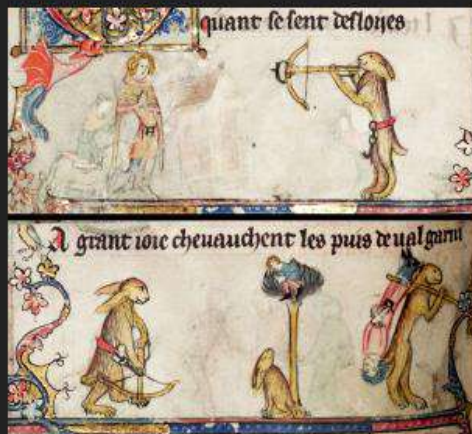 quant se sent desloiies
A grant ioie cheuauchent les puis de ual garni